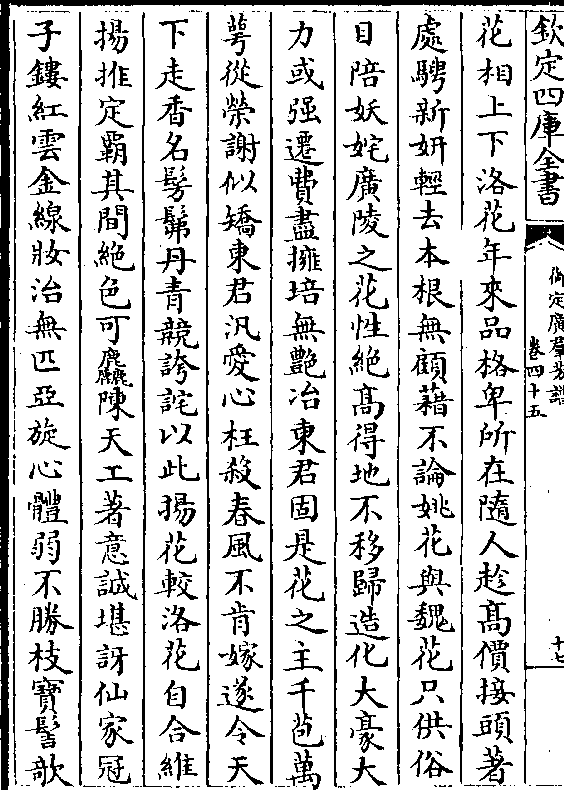 欽定四庫全書
御定廣羣芳譜
卷四十五
十七
花相上下洛花年來品格卑所在隨人趁高價接頭著
處騁新妍輕去本根無顧藉不論姚花與魏花只供俗
目陪妖姹廣陵之花性絕髙得地不移歸造化大豪大
力或强遷費盡擁培無艷冶東君固是花之主千苞萬
萼從榮謝似矯東君汎愛心枉殺春風不肯嫁遂令天
下走香名髣髴丹青競誇詫以此揚花較洛花自合維
揚推定霸其間絕色可麤陳天工著意誠堪訝仙家冠
子鏤紅雲金線妝治無匹亞旋心體弱不勝枝寳髻欹